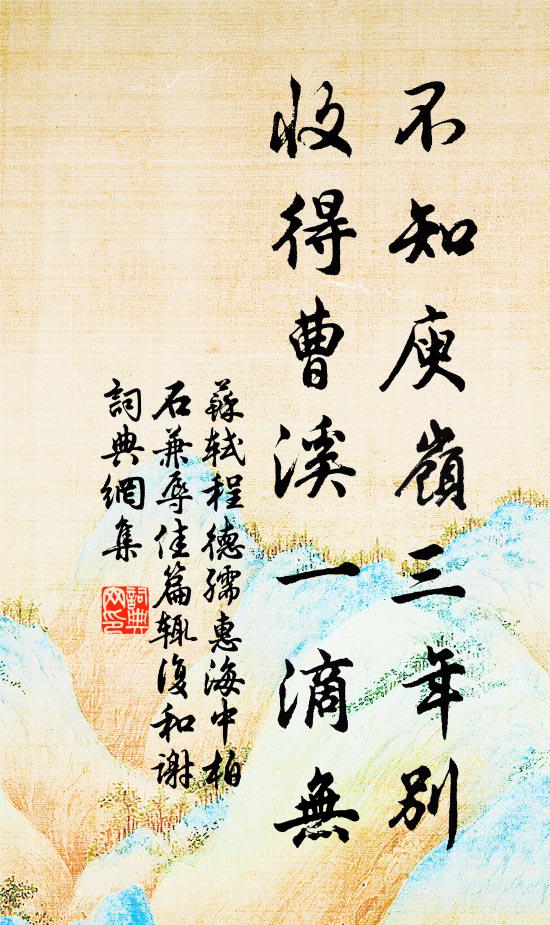 不知庾嶺三年別
收得曹溪一滴無
蘇軾程德孺惠海中柏
石兼辱佳篇輒復和謝
詞典網集
詞典
网印